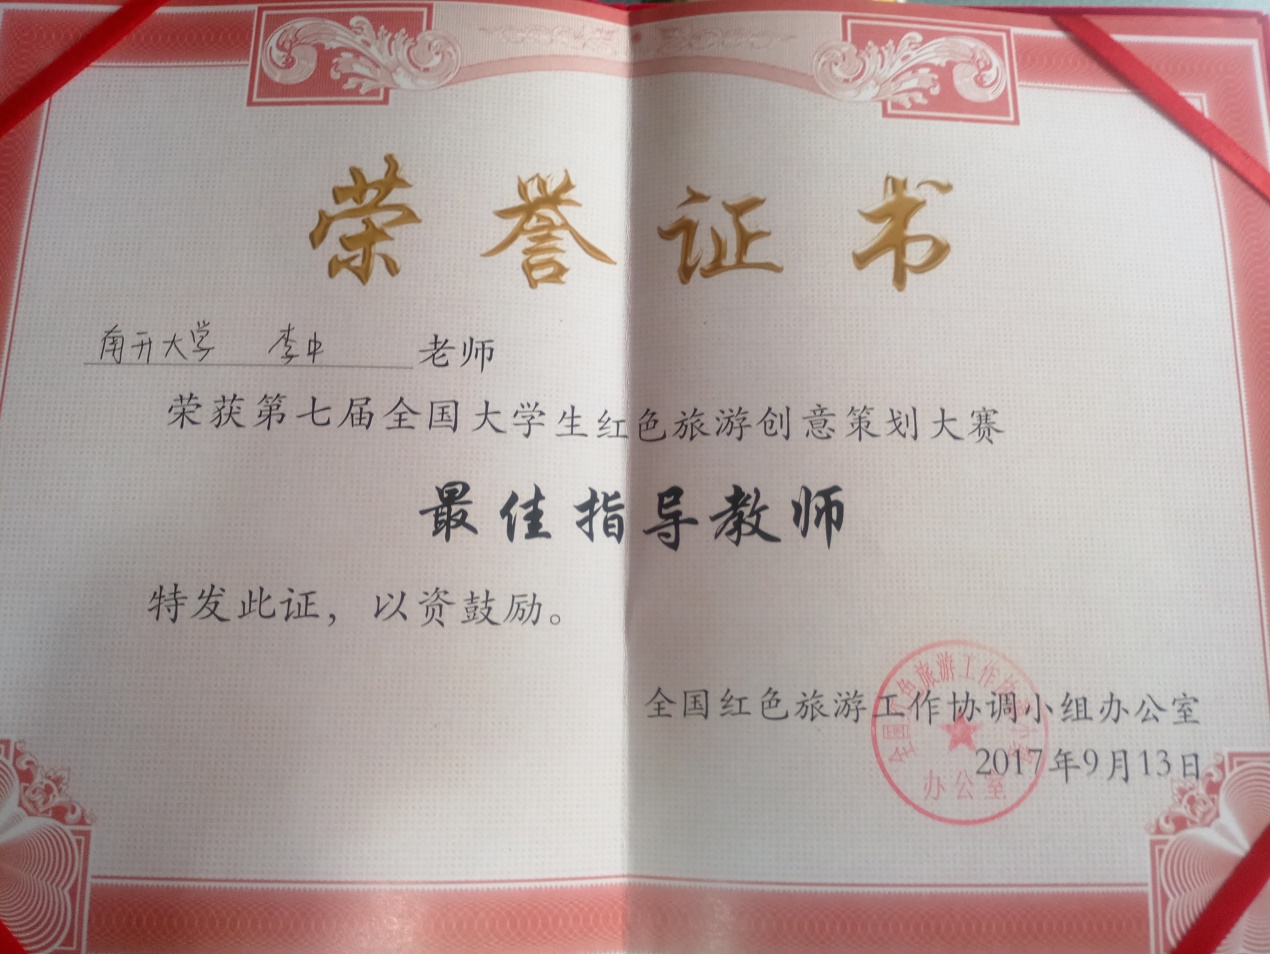 荣誉证书
南开大学 李中 老师
荣获第七届全国大学生红色旅游创意策划大赛
最佳指导教师
特发此证，以资鼓励。
全国红色旅游工作协调小组办公室
2017年9月13日
全国红色旅游工作协调小组
办公室